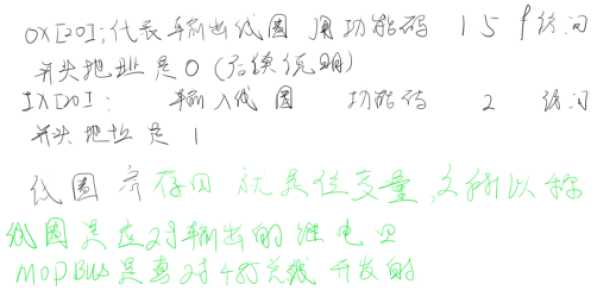 OX[20]:代表输出线圈 用功能码 15 访问
开头地址是0(后续说明)
IX[20]: 输入线圈 功能码 2 访问
开头地址是 1
线圈寄存器就是位变量,之所以称
线圈是应对输出的继电器
MODBUS是对485总线开发的